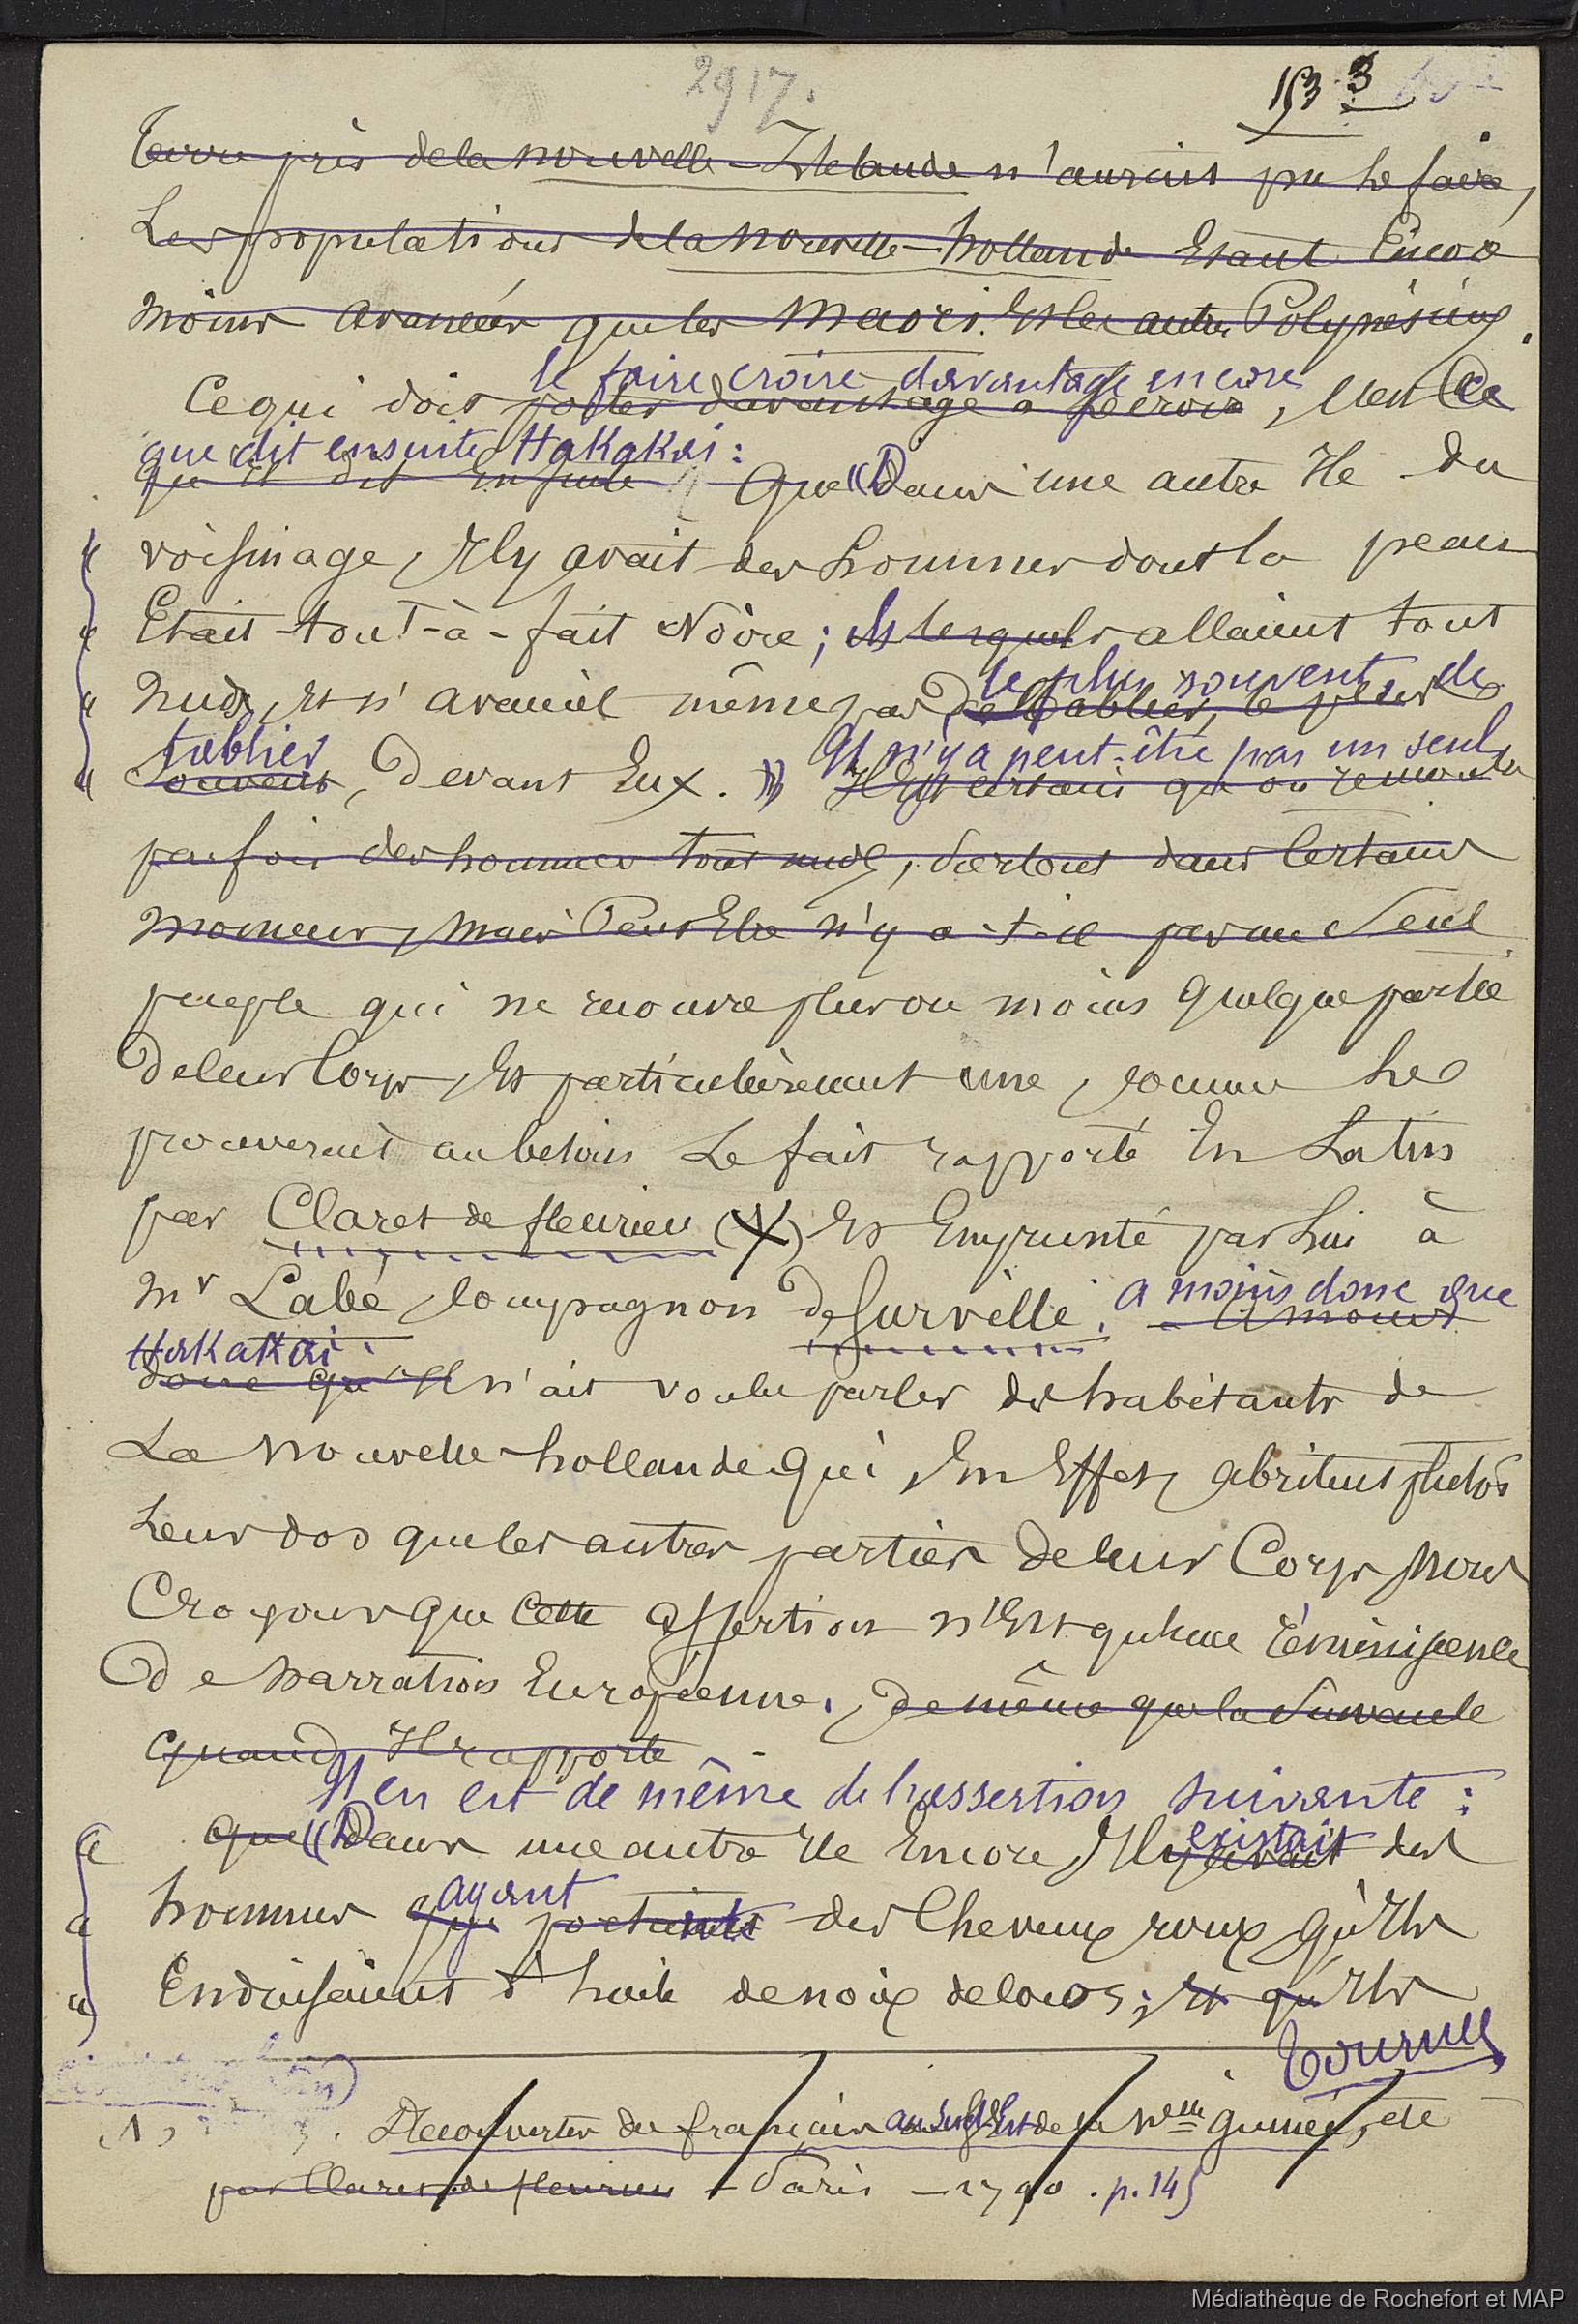 2917.
153 3
terre près de la nouvelle-Zelande n'aurait pu le faire,
Les populations de la nouvelle-hollande Etant Encore
moins avancées que les Maori Et les autres Polynésiens.
le faire croire davantage encore
Ce qui doit porter davantage à le croire, c'est Ce
que dit ensuite Hakakai:
qu'il dit Ensuite que « Dans une autre Ile du
« voisinage, Il y avait des hommes dont la peau
« Etait-tout-à-fait Noire; Ils lesquels allaient tout
le plus souvent, de
« nuds, Et n'avaient même pas de tablier, le plus
tablier Il n'y a peut-être pas un seul
« souvent, Devant Eux. » Il Est certain qu'on rencontre
parfois des hommes tout nuds, surtout dans Certains
momens, mais Peut Etre n'y a-t-il pas un Seul
peuple qui ne recouvre plus ou moins quelque partie
De leur Corps, Et particulièrement une, comme le
prouverait au besoin Le fait rapporté En Latin
par Claret de fleurieu (X) Et Emprunté par Lui à
Mr Labé, compagnon De Surville. a moins donc que
a moins
Hakakai
donc qu'Il n'ait voulu parler des habitants de
La nouvelle-hollande qui, En Effet, abritent plutôt
Leur dos que les autres parties De leur Corps, nous
Croyons que Cette assertion n'Est qu'une réminiscence
De narration Européenne, De même que la Suivante
quand Il rapporte
Il en est de même de l'assertion suivante:
existait
« que « Dans une autre Ile Encore, Il y avait des
ayant
« hommes qui portaient des Cheveux roux qu'Ils
« Enduisaient d'huile de noix de cocos; Et qu'Ils
Tournez
Découvertes des français au sud-Est de la Nelle guinée, etc
par Claret de fleurieu - Paris - 1790. p. 145
Médiathèque de Rochefort et MAP